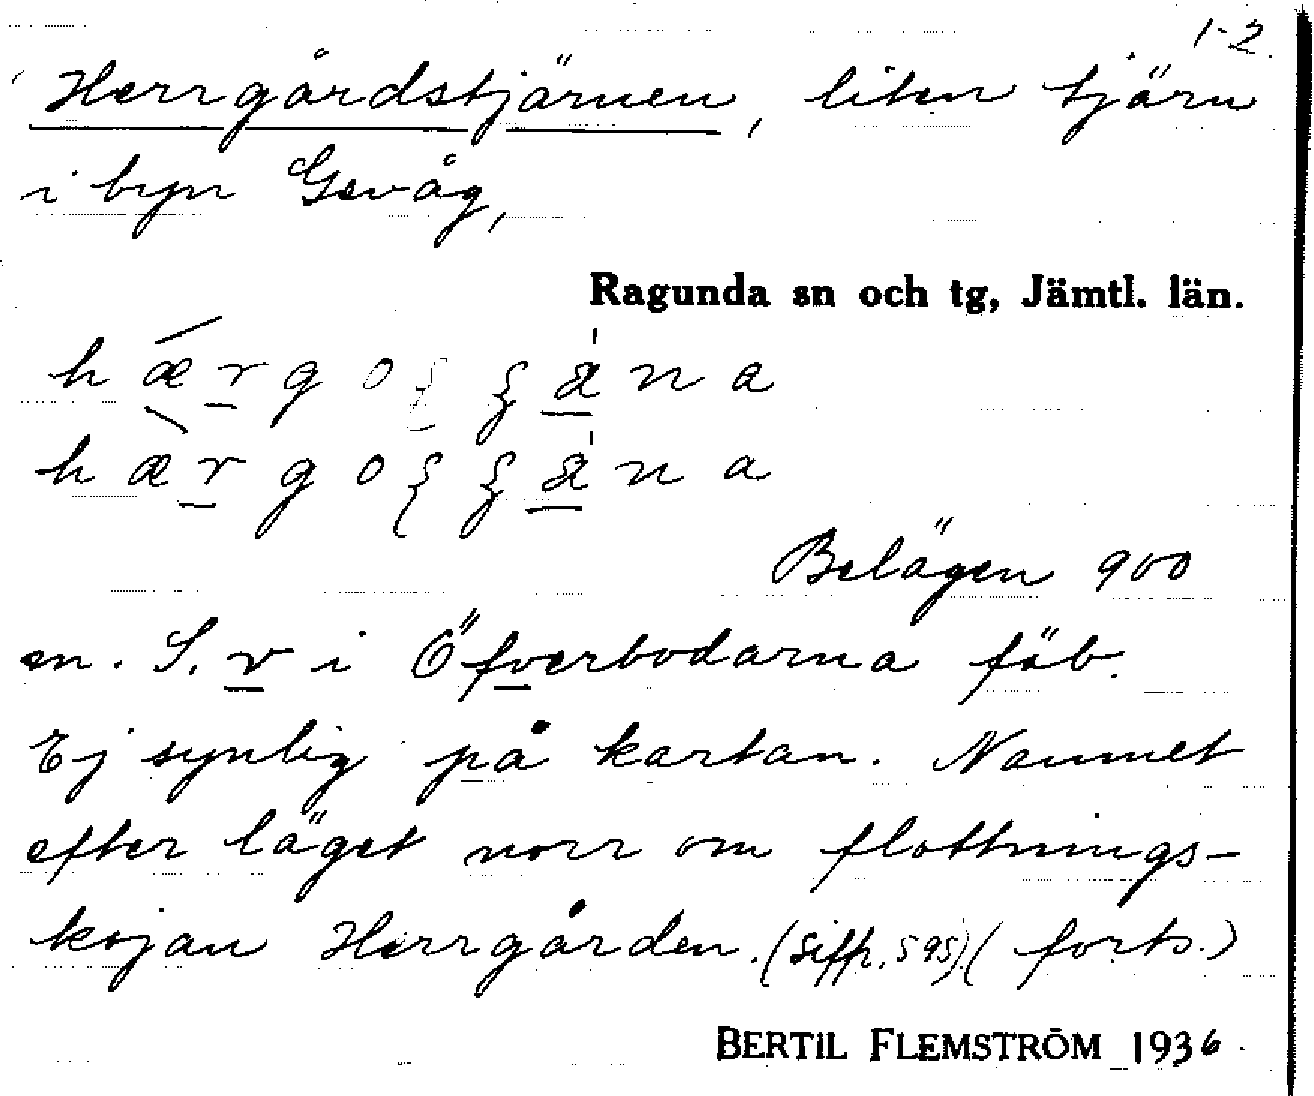 1-2.
Herrgårdstjärnen, liten tjärn
i byn Gevåg,
Ragunda sn och tg, Jämtl. län.
Belägen 900
m. S. v i Öfverbodarna fäb.
Ej synlig på kartan. Namnet
efter läget norr om flottnings-
kojan Herrgården. (siffr. 595). (forts.)
BERTIL FLEMSTRÖM 1936